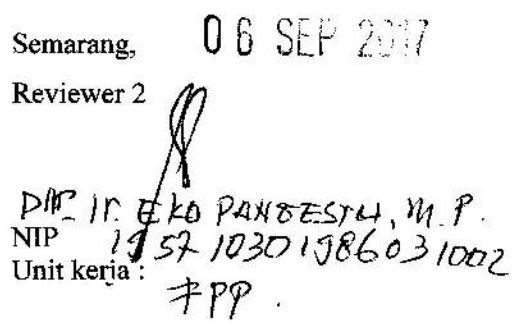 Semarang, 06 SEP 2017
Reviewer 2
Dr. Ir. EKO PANGESTU, M.P.
NIP 19571030 198603 1002
Unit kerja :
FPP.